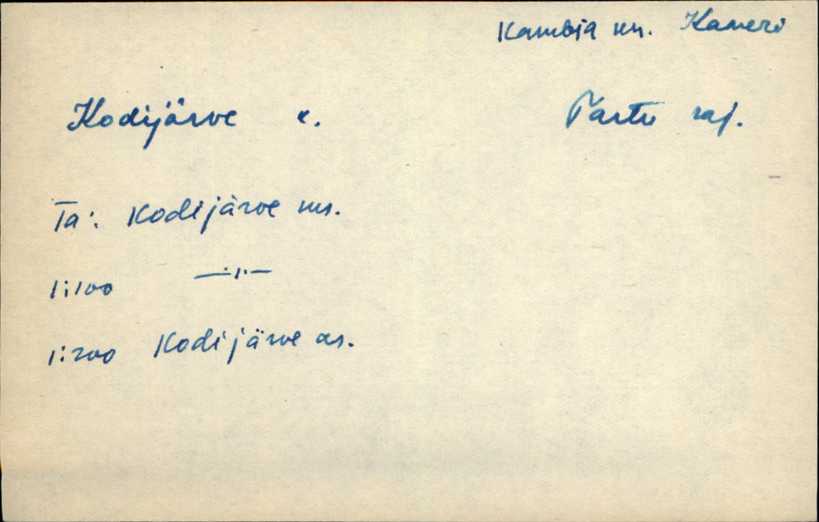 Kambja kn. Kaveri
Kodijärve k. Tartu raj.
Ta: Kodijärve ms.
1:100 —:1:—
1:200 Kodijärve as.